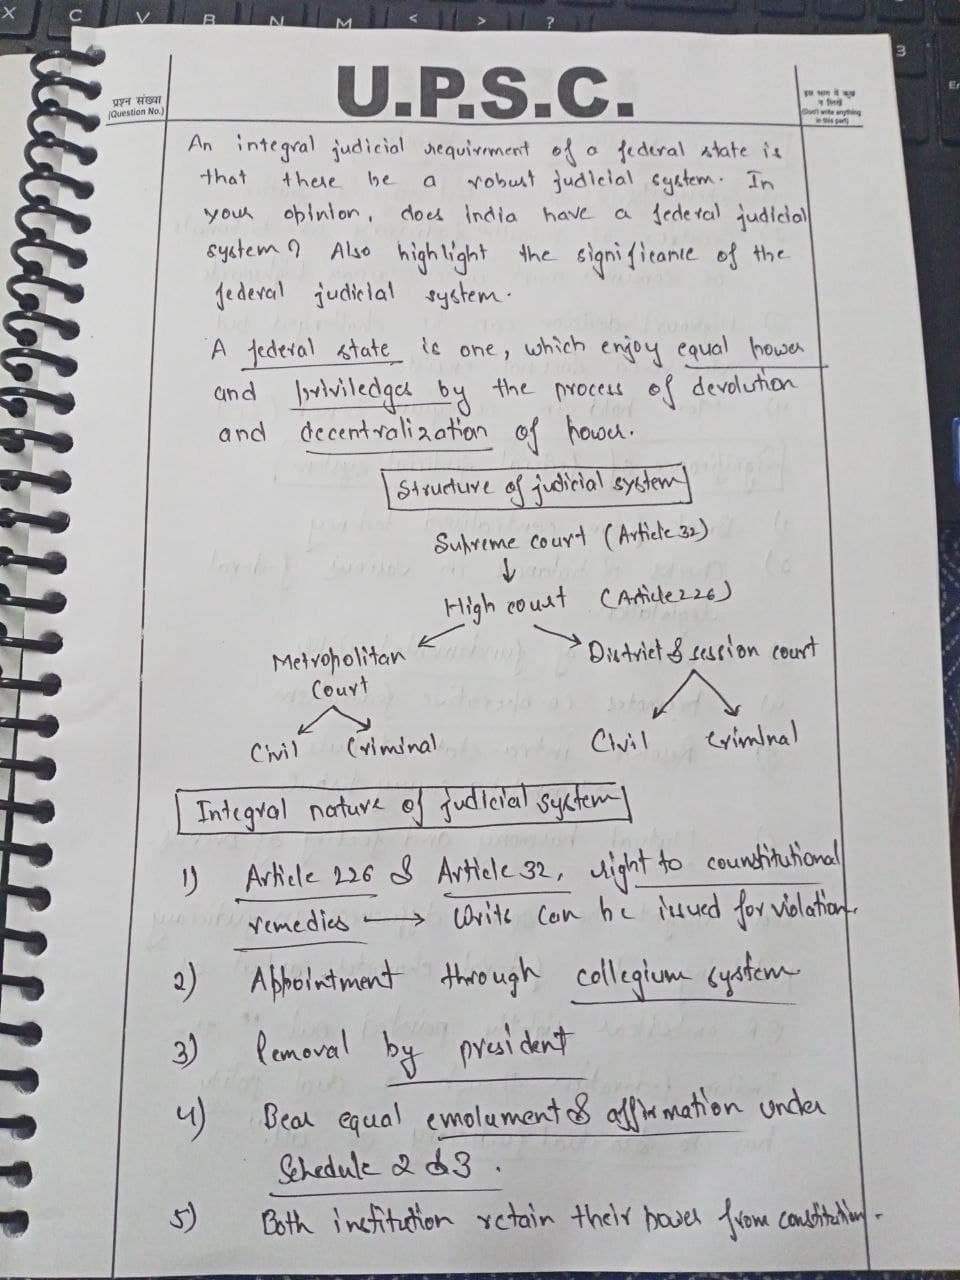 X C V B N M < > ?
3
प्रश्न संख्या
(Question No.)
U.P.S.C.
इस भाग में कुछ
न लिखें
(Don't write anything
in this part)
An integral judicial requirement of a federal state is
that there be a robust judicial system. In
your opinion, does India have a federal judicial
system? Also highlight the significance of the
federal judicial system.
A federal state is one, which enjoy equal power
and priviledges by the process of devolution
and decentralization of power.
Structure of judicial system
Supreme court (Article 32)
High court (Article 226)
Metropolitan District & session court
Court
Civil Criminal Civil Criminal
Integral nature of judicial system
1) Article 226 & Article 32, right to counstitutional
remedies → Writs can be issued for violation.
2) Appointment through collegium system
3) Removal by president
4) Bear equal emolument & affirmation under
Schedule 2 & 3.
5) Both institution retain their power from constitution.